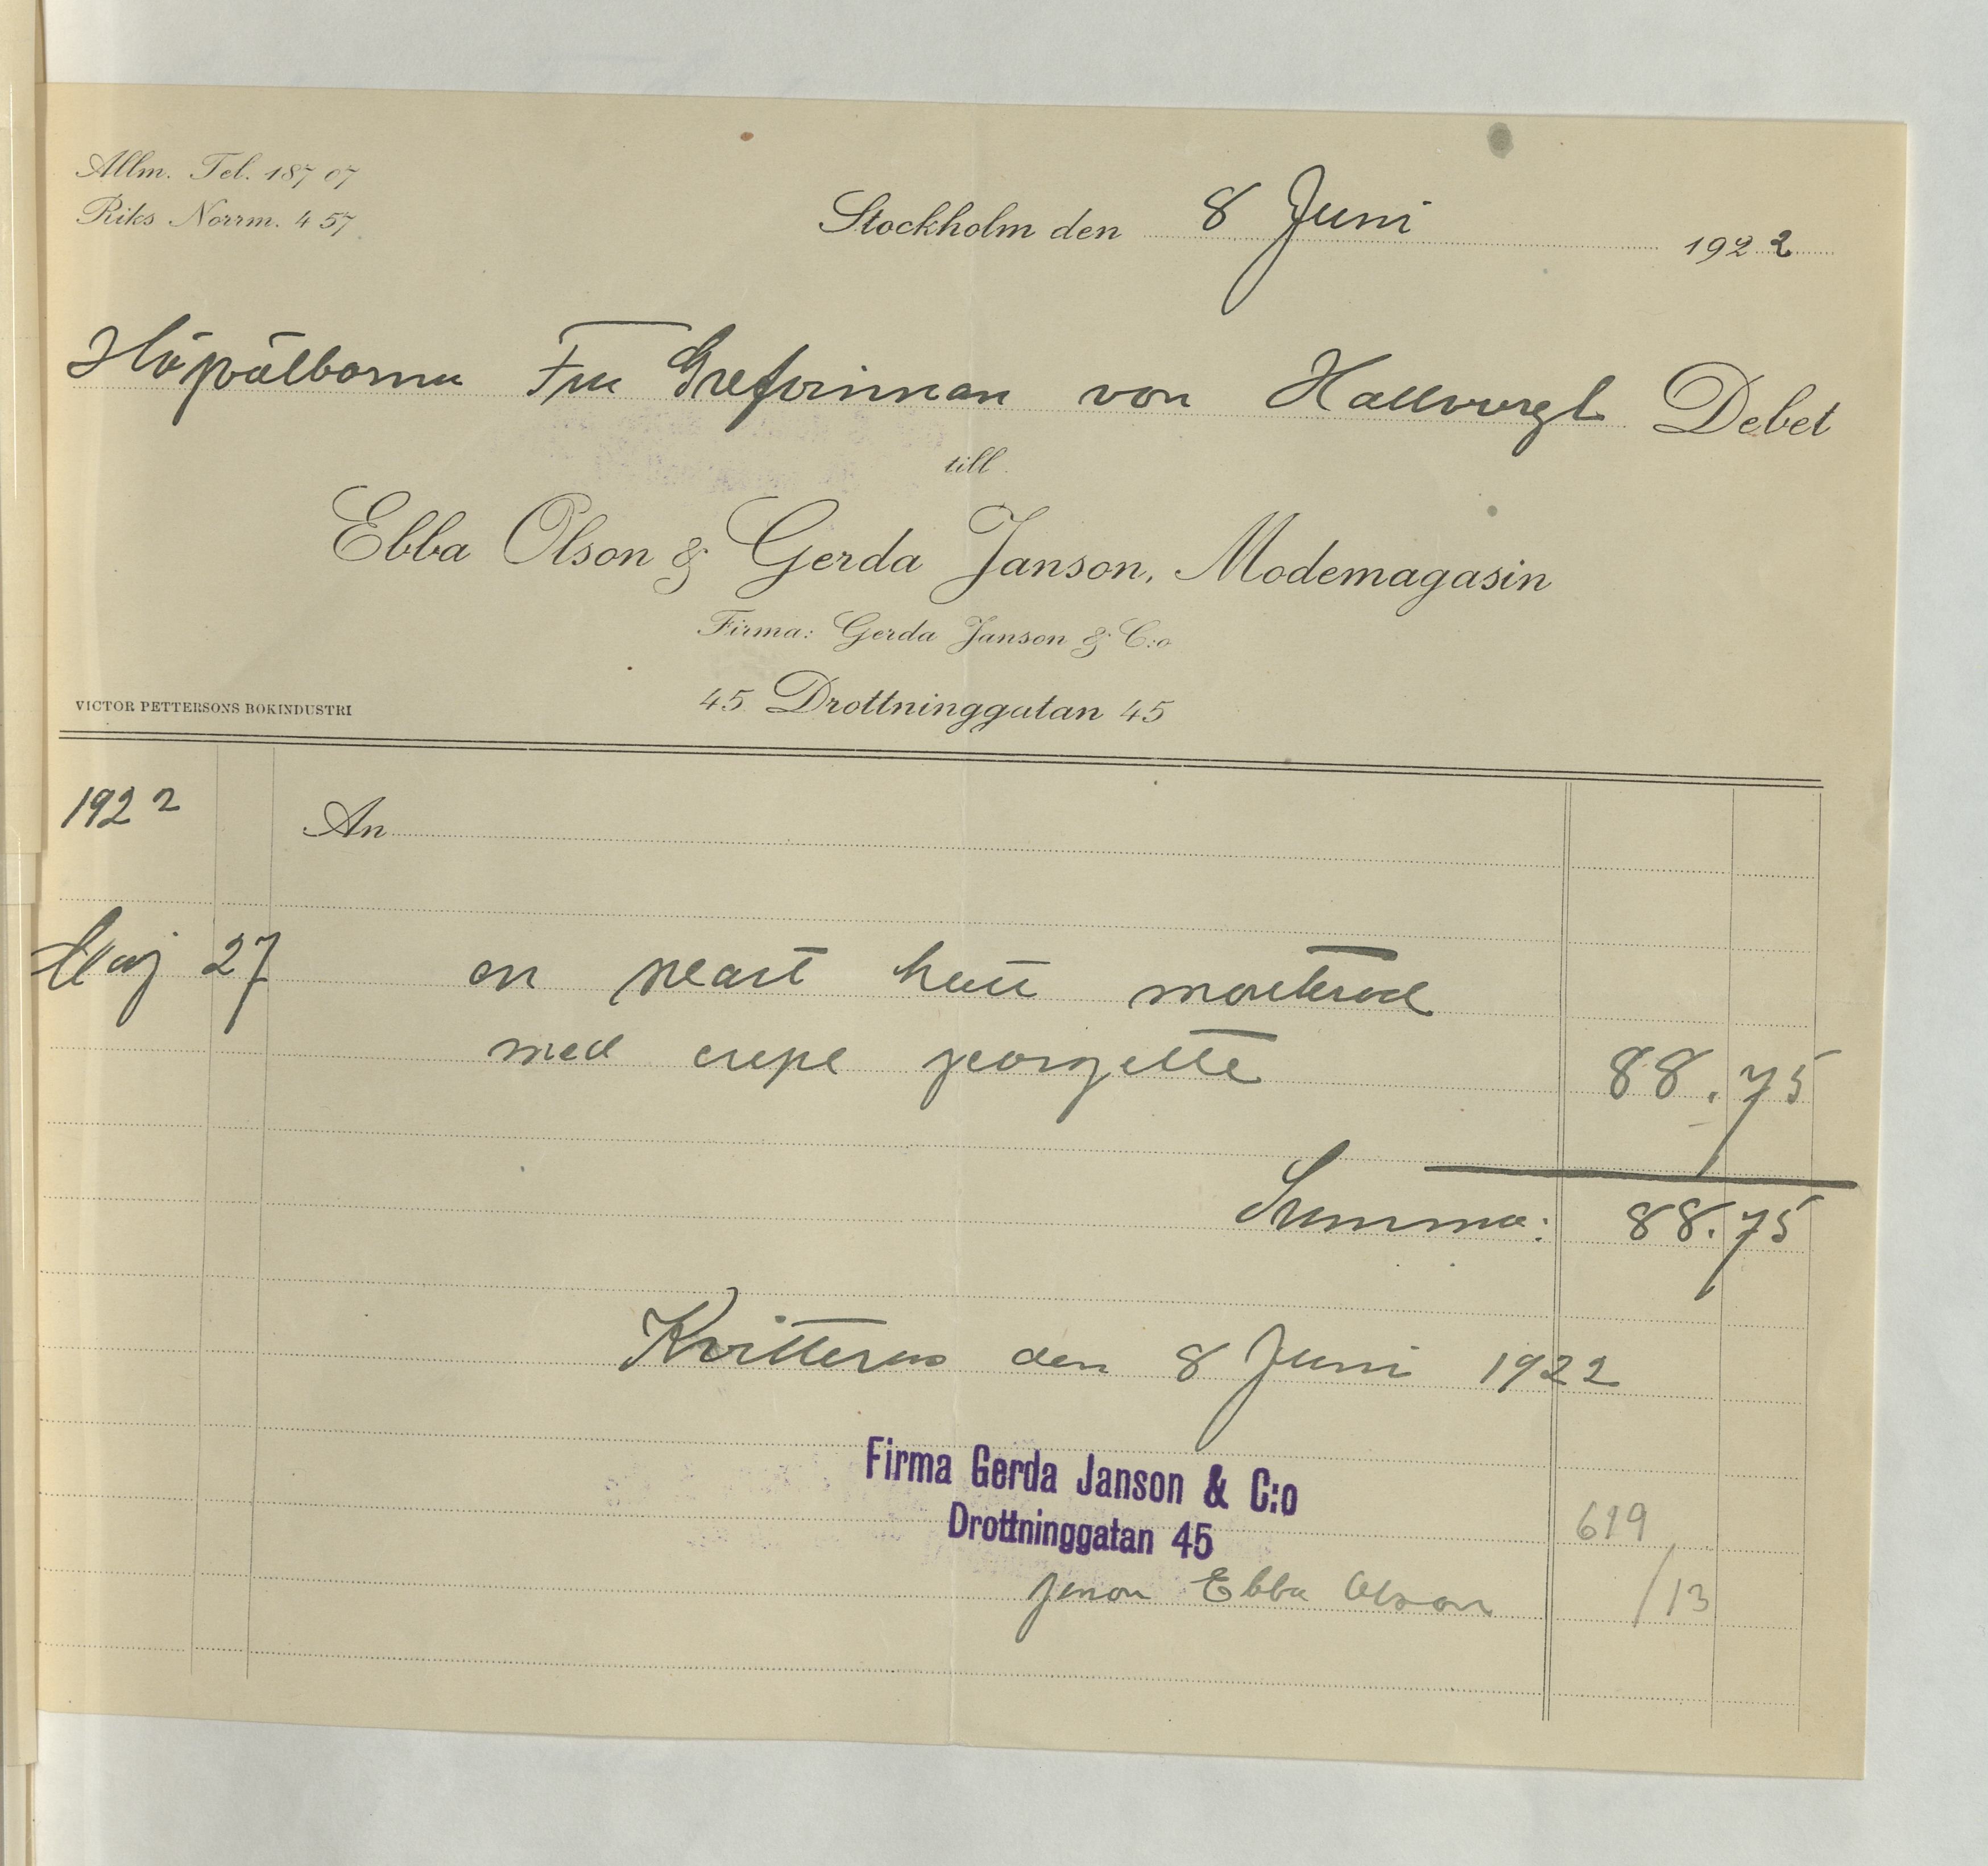 Allm. Tel. 187 07
Riks Norrm. 4 57
Stockholm den 8 Juni 1922
Högvälborna Fru Grefvinnan von Hallwyl Debet
till
Ebba Olson & Gerda Janson, Modemagasin
Firma: Gerda Janson & C:o
45 Drottninggatan 45
VICTOR PETTERSONS BOKINDUSTRI
1922 An
Maj 27 en svart hatt monterad
med crepe georgette 88.75
Summa: 88.75
Kvitteras den 8 Juni 1922
Firma Gerda Janson & C:o
Drottninggatan 45
619
genom Ebba Olson
/13